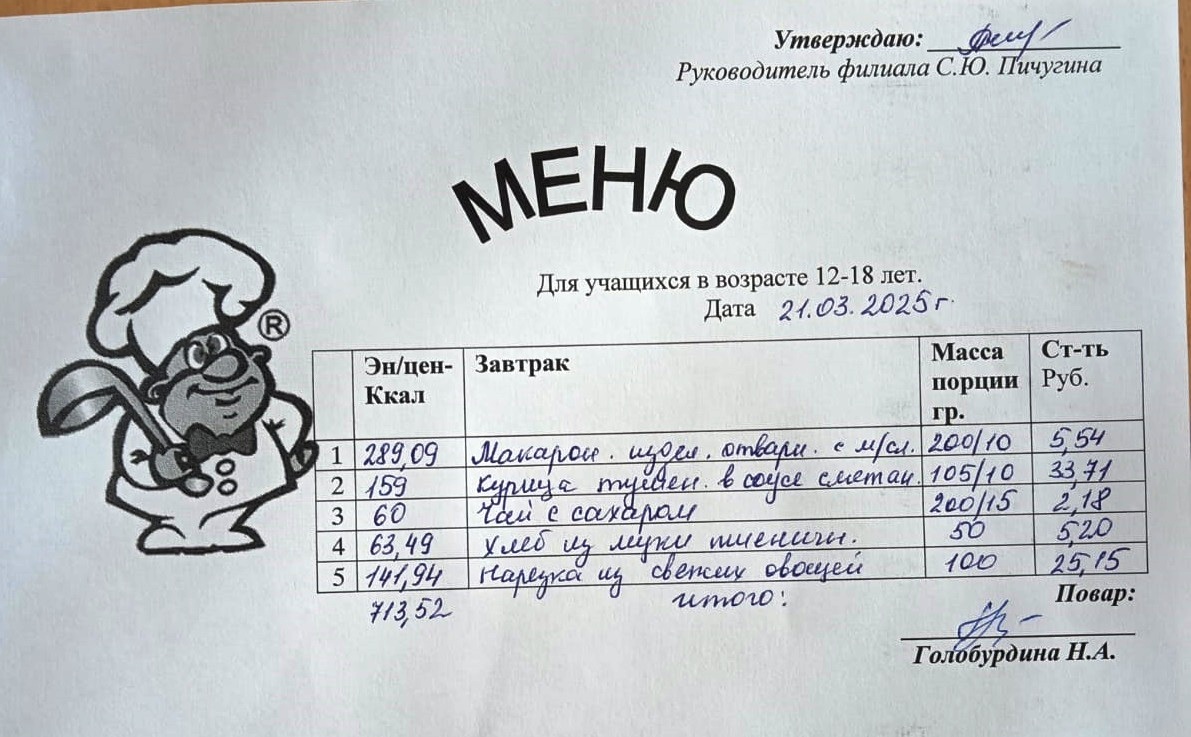 Утверждаю:
Руководитель филиала С.Ю. Пичугина
МЕНЮ
Для учащихся в возрасте 12-18 лет.
Дата 21.03.2025г.
®
Эн/цен-Ккал Завтрак Масса порции гр. Ст-ть Руб.
1 289,09 Макарон. издел. отварн. с м/сл. 200/10 5,54
2 159 Курица тушен. в соусе сметан. 105/10 33,71
3 60 Чай с сахаром 200/15 2,18
4 63,49 Хлеб из муки пшеничн. 50 5,20
5 141,94 Нарезка из свежих овощей 100 25,15
713,52 итого:
Повар:
Голобурдина Н.А.